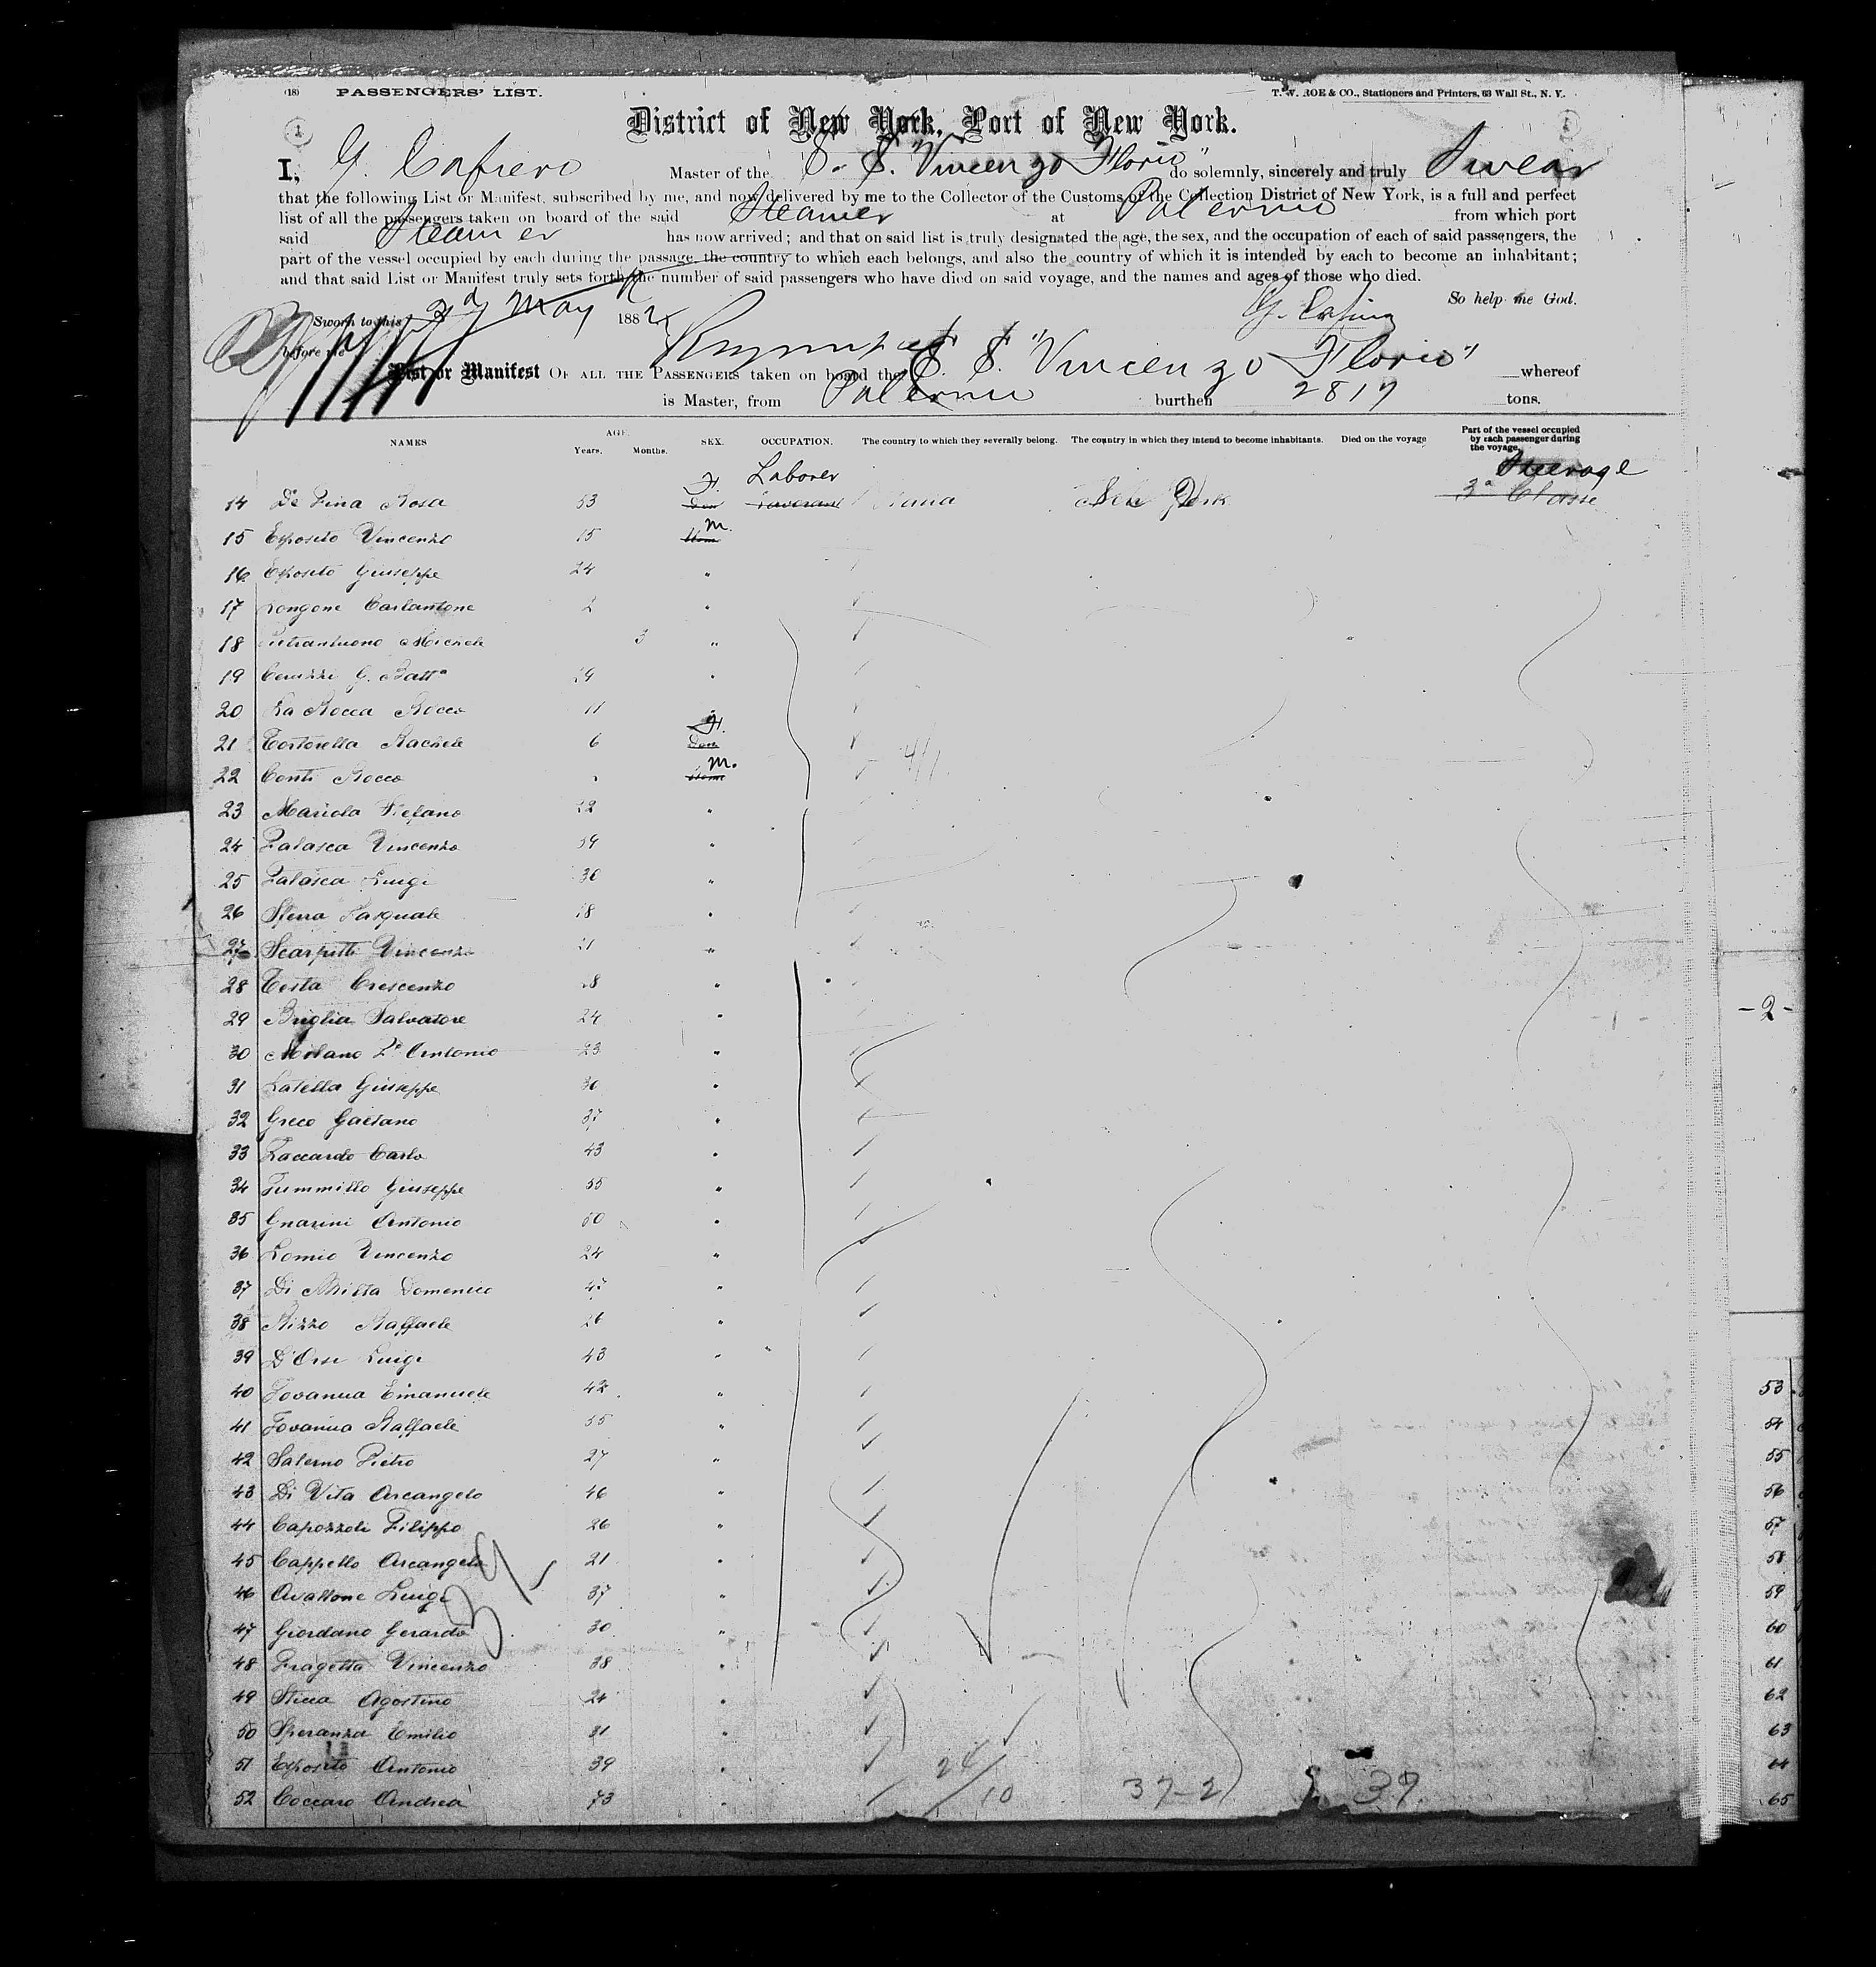 (18) PASSENGERS' LIST. T. W. ROE & CO., Stationers and Printers, 63 Wall St., N. Y.
1
District of New York, Port of New York.
I, G. Cafiero Master of the S. S. "Vincenzo Florio" do solemnly, sincerely and truly Swear
that the following List or Manifest, subscribed by me, and now delivered by me to the Collector of the Customs of the Collection District of New York, is a full and perfect
list of all the passengers taken on board of the said Steamer at Palermo from which port
said Steamer has now arrived; and that on said list is truly designated the age, the sex, and the occupation of each of said passengers, the
part of the vessel occupied by each during the passage, the country to which each belongs, and also the country of which it is intended by each to become an inhabitant;
and that said List or Manifest truly sets forth the number of said passengers who have died on said voyage, and the names and ages of those who died.
So help me God.
Sworn to this 2d May 1882 G. Cafiero
before me
List or Manifest OF ALL THE PASSENGERS taken on board the S. S. "Vincenzo Florio" whereof
is Master, from Palermo burthen 2817 tons.
NAMES AGE. Years. Months. SEX. OCCUPATION. The country to which they severally belong. The country in which they intend to become inhabitants. Died on the voyage Part of the vessel occupied by each passenger during the voyage.
F Laborer Steerage
14 De Fina Rosa 53 New York 3a Classe
15 Esposito Vincenzo 15 M.
16 Esposito Giuseppe 24 "
17 Longone Carlantone 2 "
18 Pietrantuono Michele 3 "
19 G. Batta "
20 La Rocca Rocco 11
21 Tortorella Rachele 6 F.
22 Conti Rocco M.
23 Mariola Stefano 22 "
24 Falasca Vincenzo "
25 Falasca Luigi 36 "
26 Sferra Pasquale 18 "
27 Scarpitti Vincenzo 21 "
28 Testa Crescenzo "
29 Briglia Salvatore 24 "
30 Milano Antonio 23 "
31 Latella Giuseppe 36 "
32 Greco Gaetano 37 "
33 Zaccardo Carlo 43 "
34 Giuseppe 55 "
35 Gnarini Antonio 50 "
36 Lomio Vincenzo 24 "
37 Di Milla Domenico "
38 Rizzo Raffaele 26 "
39 D'Orsi Luigi 43 "
40 Emanuele 42 "
41 Raffaele 55 "
42 Salerno Pietro 27 "
43 Di Vita Arcangelo 46 "
44 Capozzoli Filippo 26 "
45 Cappello Arcangelo 21 "
46 Avallone Luigi 37 "
47 Giordano Gerardo 30 "
48 Fragetta Vincenzo 38 "
49 Sticca Agostino 24 "
50 Speranza Emilio 31 "
51 Esposito Antonio 39 "
52 Coccaro Andrea 73 "
39
24/10 37-2 39
-2-
53
54
55
56
57
58
59
60
61
62
63
64
65